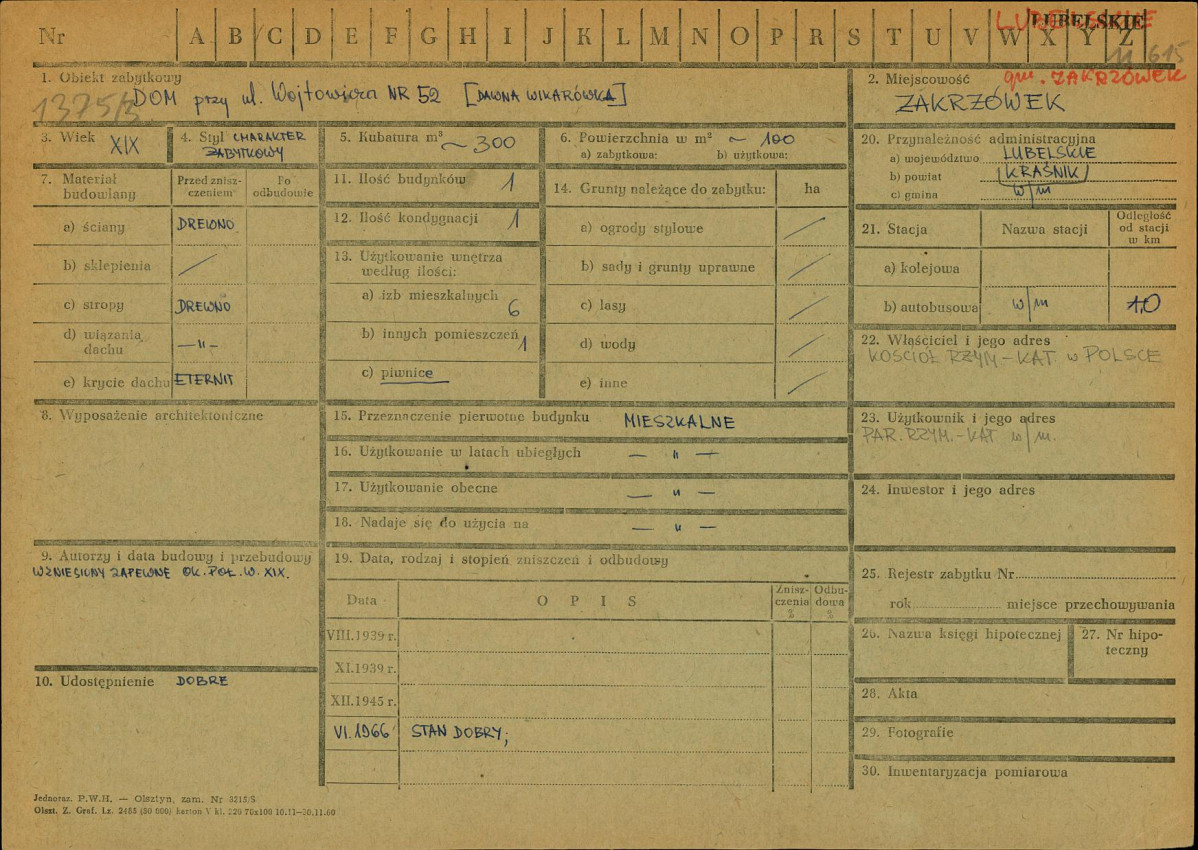 LUBELSKIE
LUBELSKIE
Nr A B C D E F G H I J K L M N O P R S T U V W X Y Z
11615
gm. ZAKRZÓWEK
1375/3
1. Obiekt zabytkowy
DOM przy ul. Wojtowicza NR 52 [DAWNA WIKARÓWKA]
2. Miejscowość
ZAKRZÓWEK
3. Wiek XIX
4. Styl CHARAKTER
ZABYTKOWY
5. Kubatura m³ ~300
6. Powierzchnia w m² ~100
a) zabytkowa: b) użytkowa:
7. Materiał budowlany
Przed zniszczeniem
Po odbudowie
a) ściany DREWNO
b) sklepienia /
c) stropy DREWNO
d) wiązania dachu —„—
e) krycie dachu ETERNIT
8. Wyposażenie architektoniczne
9. Autorzy i data budowy i przebudowy
WZNIESIONY ZAPEWNE OK. POŁ. W. XIX.
10. Udostępnienie DOBRE
11. Ilość budynków 1
12. Ilość kondygnacji 1
13. Użytkowanie wnętrza
według ilości:
a) izb mieszkalnych 6
b) innych pomieszczeń 1
c) piwnice
14. Grunty należące do zabytku: ha
a) ogrody stylowe /
b) sady i grunty uprawne /
c) lasy /
d) wody /
e) inne /
15. Przeznaczenie pierwotne budynku MIESZKALNE
16. Użytkowanie w latach ubiegłych — „ —
17. Użytkowanie obecne — „ —
18. Nadaje się do użycia na — „ —
19. Data, rodzaj i stopień zniszczeń i odbudowy
Data OPIS Zniszczenia % Odbudowa %
VIII.1939 r.
XI.1939 r.
XII.1945 r.
VI.1966 STAN DOBRY;
20. Przynależność administracyjna
a) województwo LUBELSKIE
b) powiat KRAŚNIK
c) gmina w/m
21. Stacja Nazwa stacji Odległość od stacji w km
a) kolejowa
b) autobusowa w/m 1,0
22. Właściciel i jego adres
KOŚCIÓŁ RZYM-KAT. w POLSCE
23. Użytkownik i jego adres
PAR. RZYM.-KAT w/m.
24. Inwestor i jego adres
25. Rejestr zabytku Nr
rok miejsce przechowywania
26. Nazwa księgi hipotecznej
27. Nr hipoteczny
28. Akta
29. Fotografie
30. Inwentaryzacja pomiarowa
Jednoraz. P.W.H. — Olsztyn, zam. Nr 3215/S
Olszt. Z. Graf. Lz. 2455 (50 000) karton V kl. 220 70x100 10.11—30.11.60